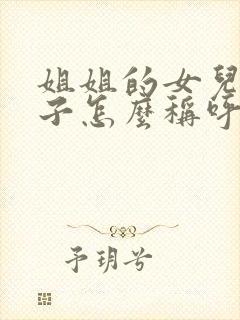 姐姐的女兒
子怎麼稱呼
予玥兮